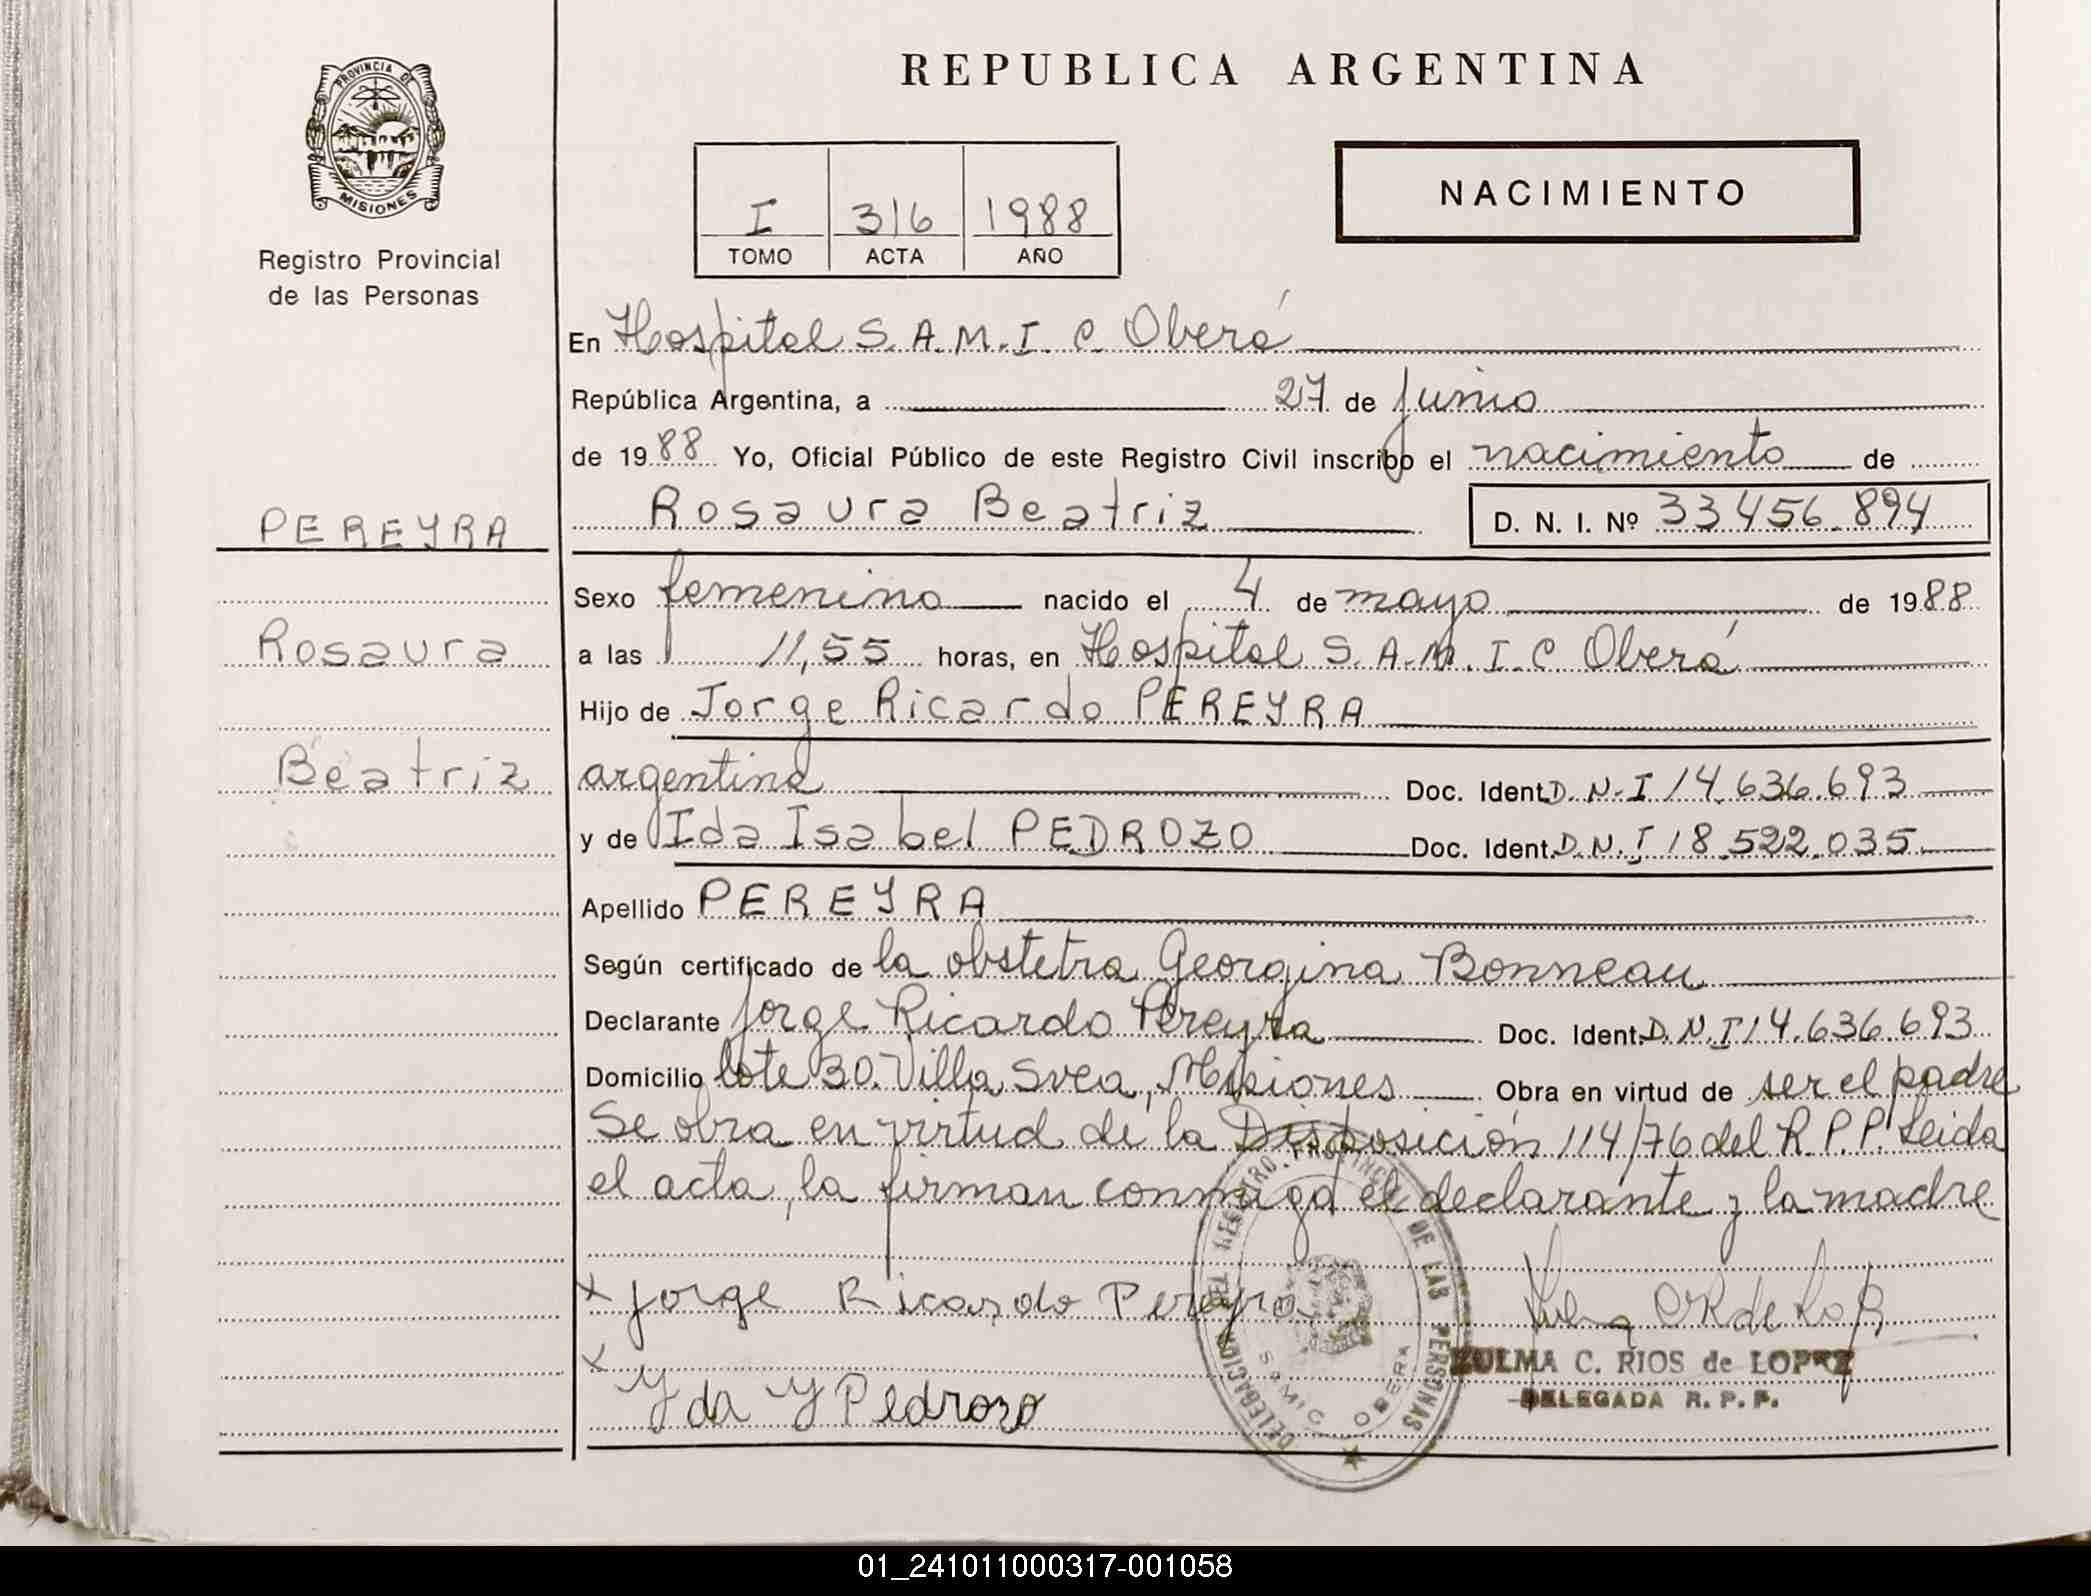 PROVINCIA DE
MISIONES
Registro Provincial
de las Personas
REPUBLICA ARGENTINA
NACIMIENTO
I 316 1988
TOMO ACTA AÑO
En Hospital S.A.M.I.C. Oberá
República Argentina, a 27 de junio
de 1988 Yo, Oficial Público de este Registro Civil inscribo el nacimiento de
PEREYRA
Rosaura Beatriz D. N. I. Nº 33456.894
Sexo femenino nacido el 4 de mayo de 1988
Rosaura
a las 11,55 horas, en Hospital S.A.M.I.C Oberá
Hijo de Jorge Ricardo PEREYRA
Beatriz
argentina Doc. Ident. D.N.I 14.636.693
y de Ida Isabel PEDROZO Doc. Ident. D.N.I 18.522.035
Apellido PEREYRA
Según certificado de la obstetra Georgina Bonneau
Declarante Jorge Ricardo Pereyra Doc. Ident. D.N.I 14.636.693
Domicilio lote 30. Villa Svea, Misiones Obra en virtud de ser el padre
Se obra en virtud de la Disposición 114/76 del R.P.P. Leida
el acta, la firman conmigo el declarante y la madre
x Jorge Ricardo Pereyra
x
Yda Y Pedrozo
REGISTRO PROVINCIAL DE LAS PERSONAS
DELEGACION
SAMIC OBERA
ZULMA C. RIOS de LOPEZ
DELEGADA R. P. P.
01_241011000317-001058